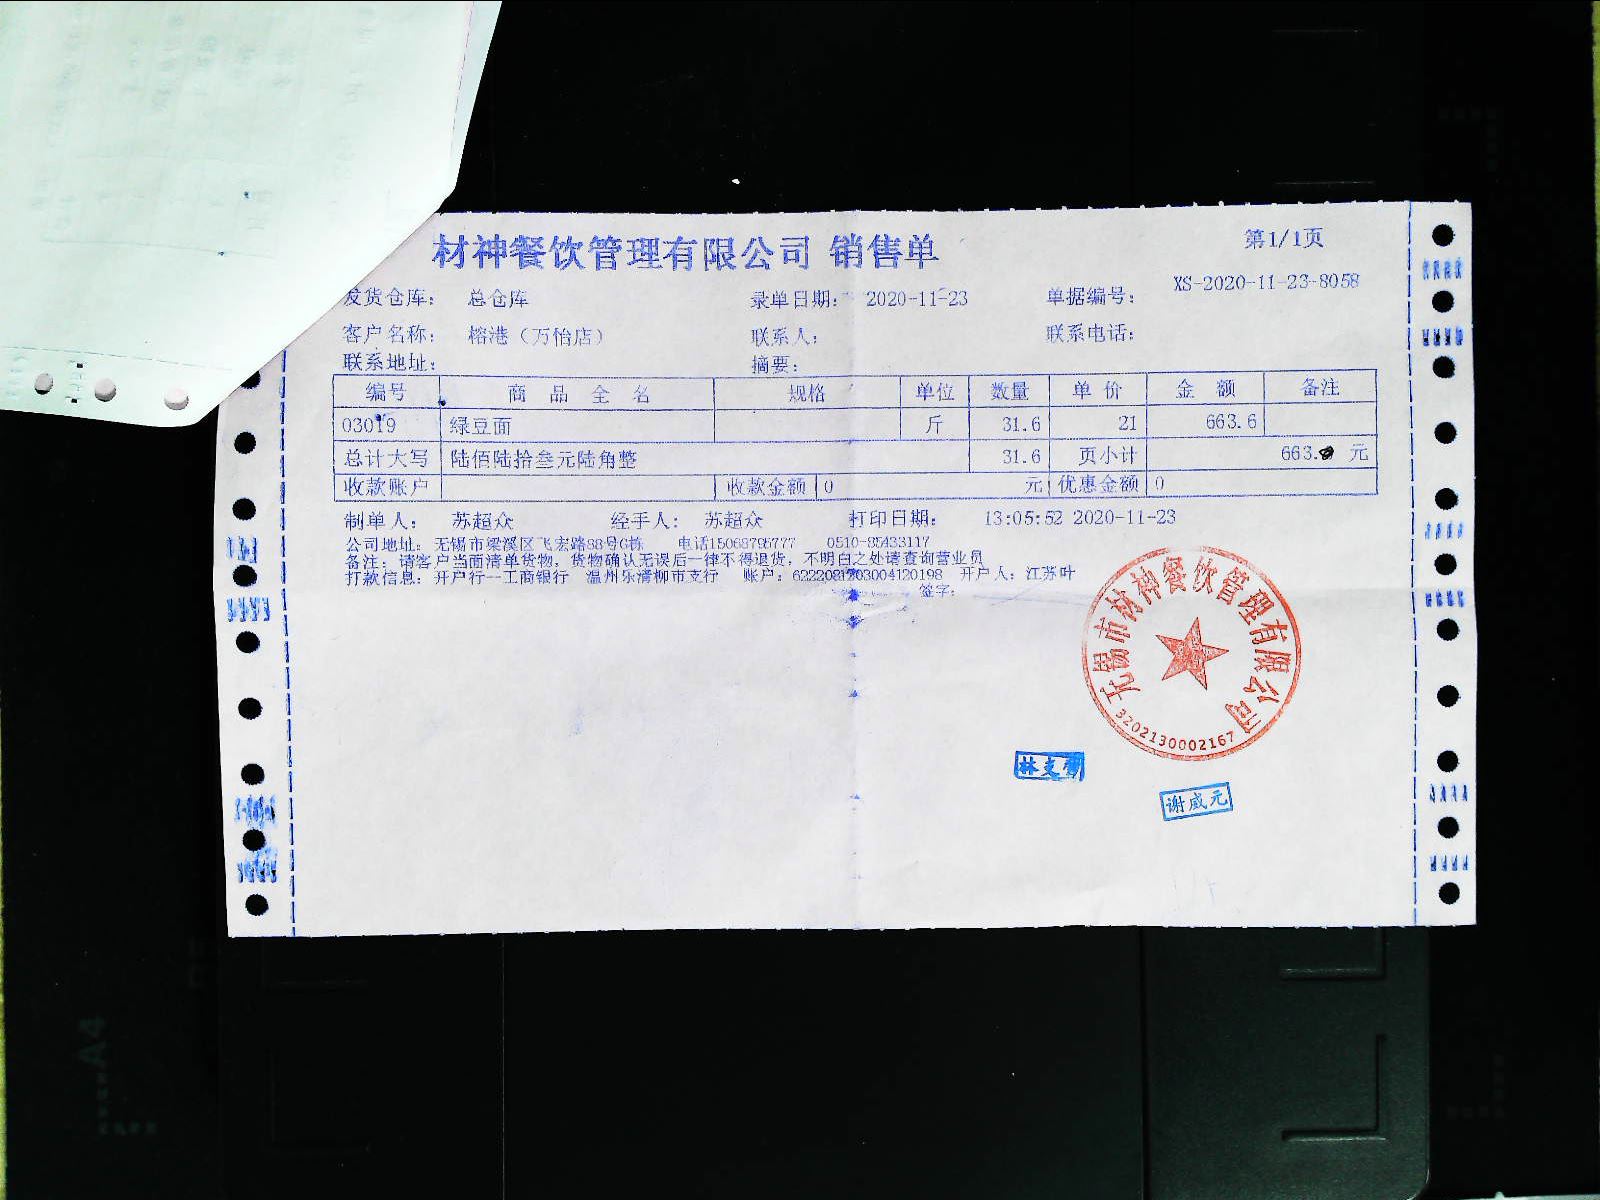 材神餐饮管理有限公司 销售单
第1/1页
发货仓库： 总仓库 录单日期： 2020-11-23 单据编号： XS-2020-11-23-8058
客户名称： 榕港（万怡店） 联系人： 联系电话：
联系地址： 摘要：
编号 商品全名 规格 单位 数量 单价 金额 备注
03019 绿豆面 斤 31.6 21 663.6
总计大写 陆佰陆拾叁元陆角整 31.6 页小计 663. 元
收款账户 收款金额 0 元 优惠金额 0
制单人： 苏超众 经手人： 苏超众 打印日期： 13:05:52 2020-11-23
公司地址：无锡市梁溪区飞宏路88号G栋 电话15068795777 0510-85433117
备注：请客户当面清单货物，货物确认无误后一律不得退货，不明白之处请查询营业员
打款信息：开户行--工商银行 温州乐清柳市支行 账户： 开户人：江苏叶
签字：
无锡市材神餐饮管理有限公司
3202130002167
谢咸元
A4